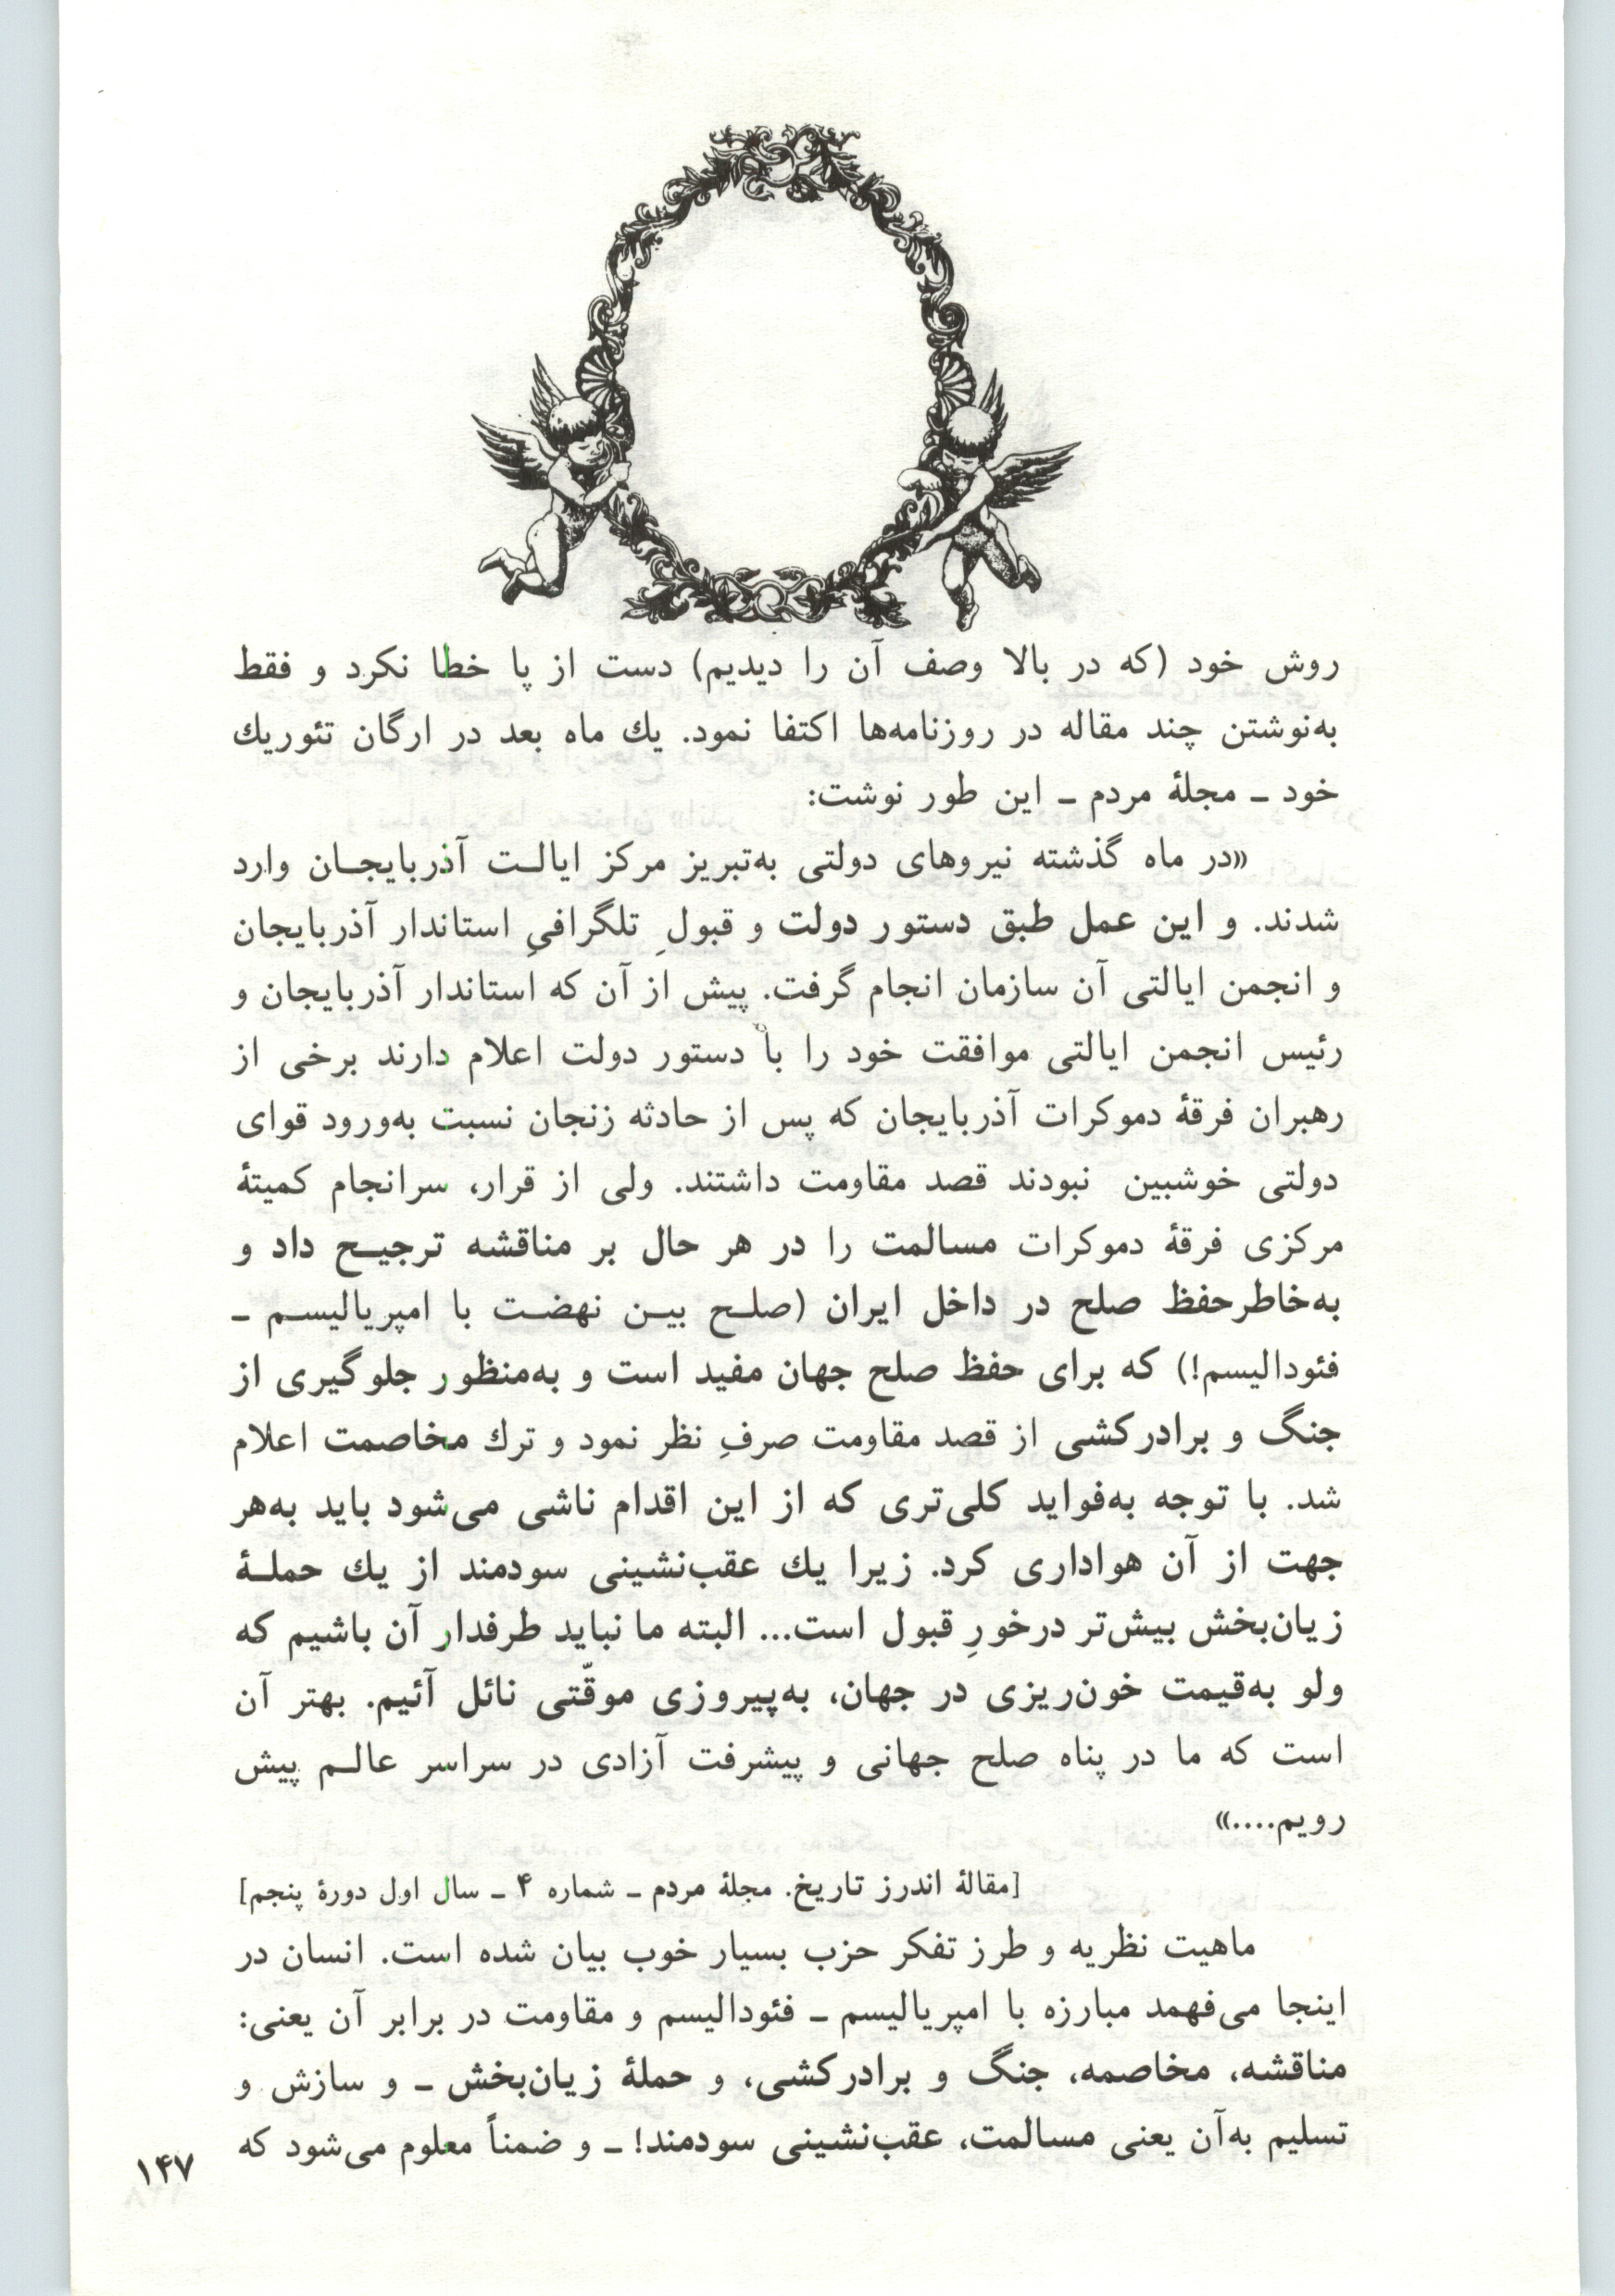 روش خود (که در بالا وصف آن را دیدیم) دست از پا خطا نکرد و فقط
به‌نوشتن چند مقاله در روزنامه‌ها اکتفا نمود. یك ماه بعد در ارگان تئوریك
خود ـ مجلهٔ مردم ـ این طور نوشت:
«در ماه گذشته نیروهای دولتی به‌تبریز مرکز ایالـت آذربایجـان وارد
شدند. و این عمل طبق دستور دولت و قبولِ تلگرافیِ استاندار آذربایجان
و انجمن ایالتی آن سازمان انجام گرفت. پیش از آن که استاندار آذربایجان و
رئیس انجمن ایالتی موافقت خود را با دستور دولت اعلام دارند برخی از
رهبران فرقهٔ دموکرات آذربایجان که پس از حادثه زنجان نسبت به‌ورود قوای
دولتی خوشبین نبودند قصد مقاومت داشتند. ولی از قرار، سرانجام کمیتهٔ
مرکزی فرقهٔ دموکرات مسالمت را در هر حال بر مناقشه ترجیـح داد و
به‌خاطرحفظ صلح در داخل ایران (صلـح بیـن نهضـت با امپریالیسـم ـ
فئودالیسم!) که برای حفظ صلح جهان مفید است و به‌منظور جلوگیری از
جنگ و برادرکشی از قصد مقاومت صرفِ نظر نمود و ترك مخاصمت اعلام
شد. با توجه به‌فواید کلی‌تری که از این اقدام ناشی می‌شود باید به‌هر
جهت از آن هواداری کرد. زیرا یك عقب‌نشینی سودمند از یك حملـهٔ
زیان‌بخش بیش‌تر درخورِ قبول است... البته ما نباید طرفدار آن باشیم که
ولو به‌قیمت خون‌ریزی در جهان، به‌پیروزی موقّتی نائل آئیم. بهتر آن
است که ما در پناه صلح جهانی و پیشرفت آزادی در سراسر عالـم پیش
رویم....»
[مقالهٔ اندرز تاریخ. مجلهٔ مردم ـ شماره ۴ ـ سال اول دورهٔ پنجم]
ماهیت نظریه و طرز تفکر حزب بسیار خوب بیان شده است. انسان در
اینجا می‌فهمد مبارزه با امپریالیسم ـ فئودالیسم و مقاومت در برابر آن یعنی:
مناقشه، مخاصمه، جنگ و برادرکشی، و حملهٔ زیان‌بخش ـ و سازش و
تسلیم به‌آن یعنی مسالمت، عقب‌نشینی سودمند! ـ و ضمناً معلوم می‌شود که
۱۴۷